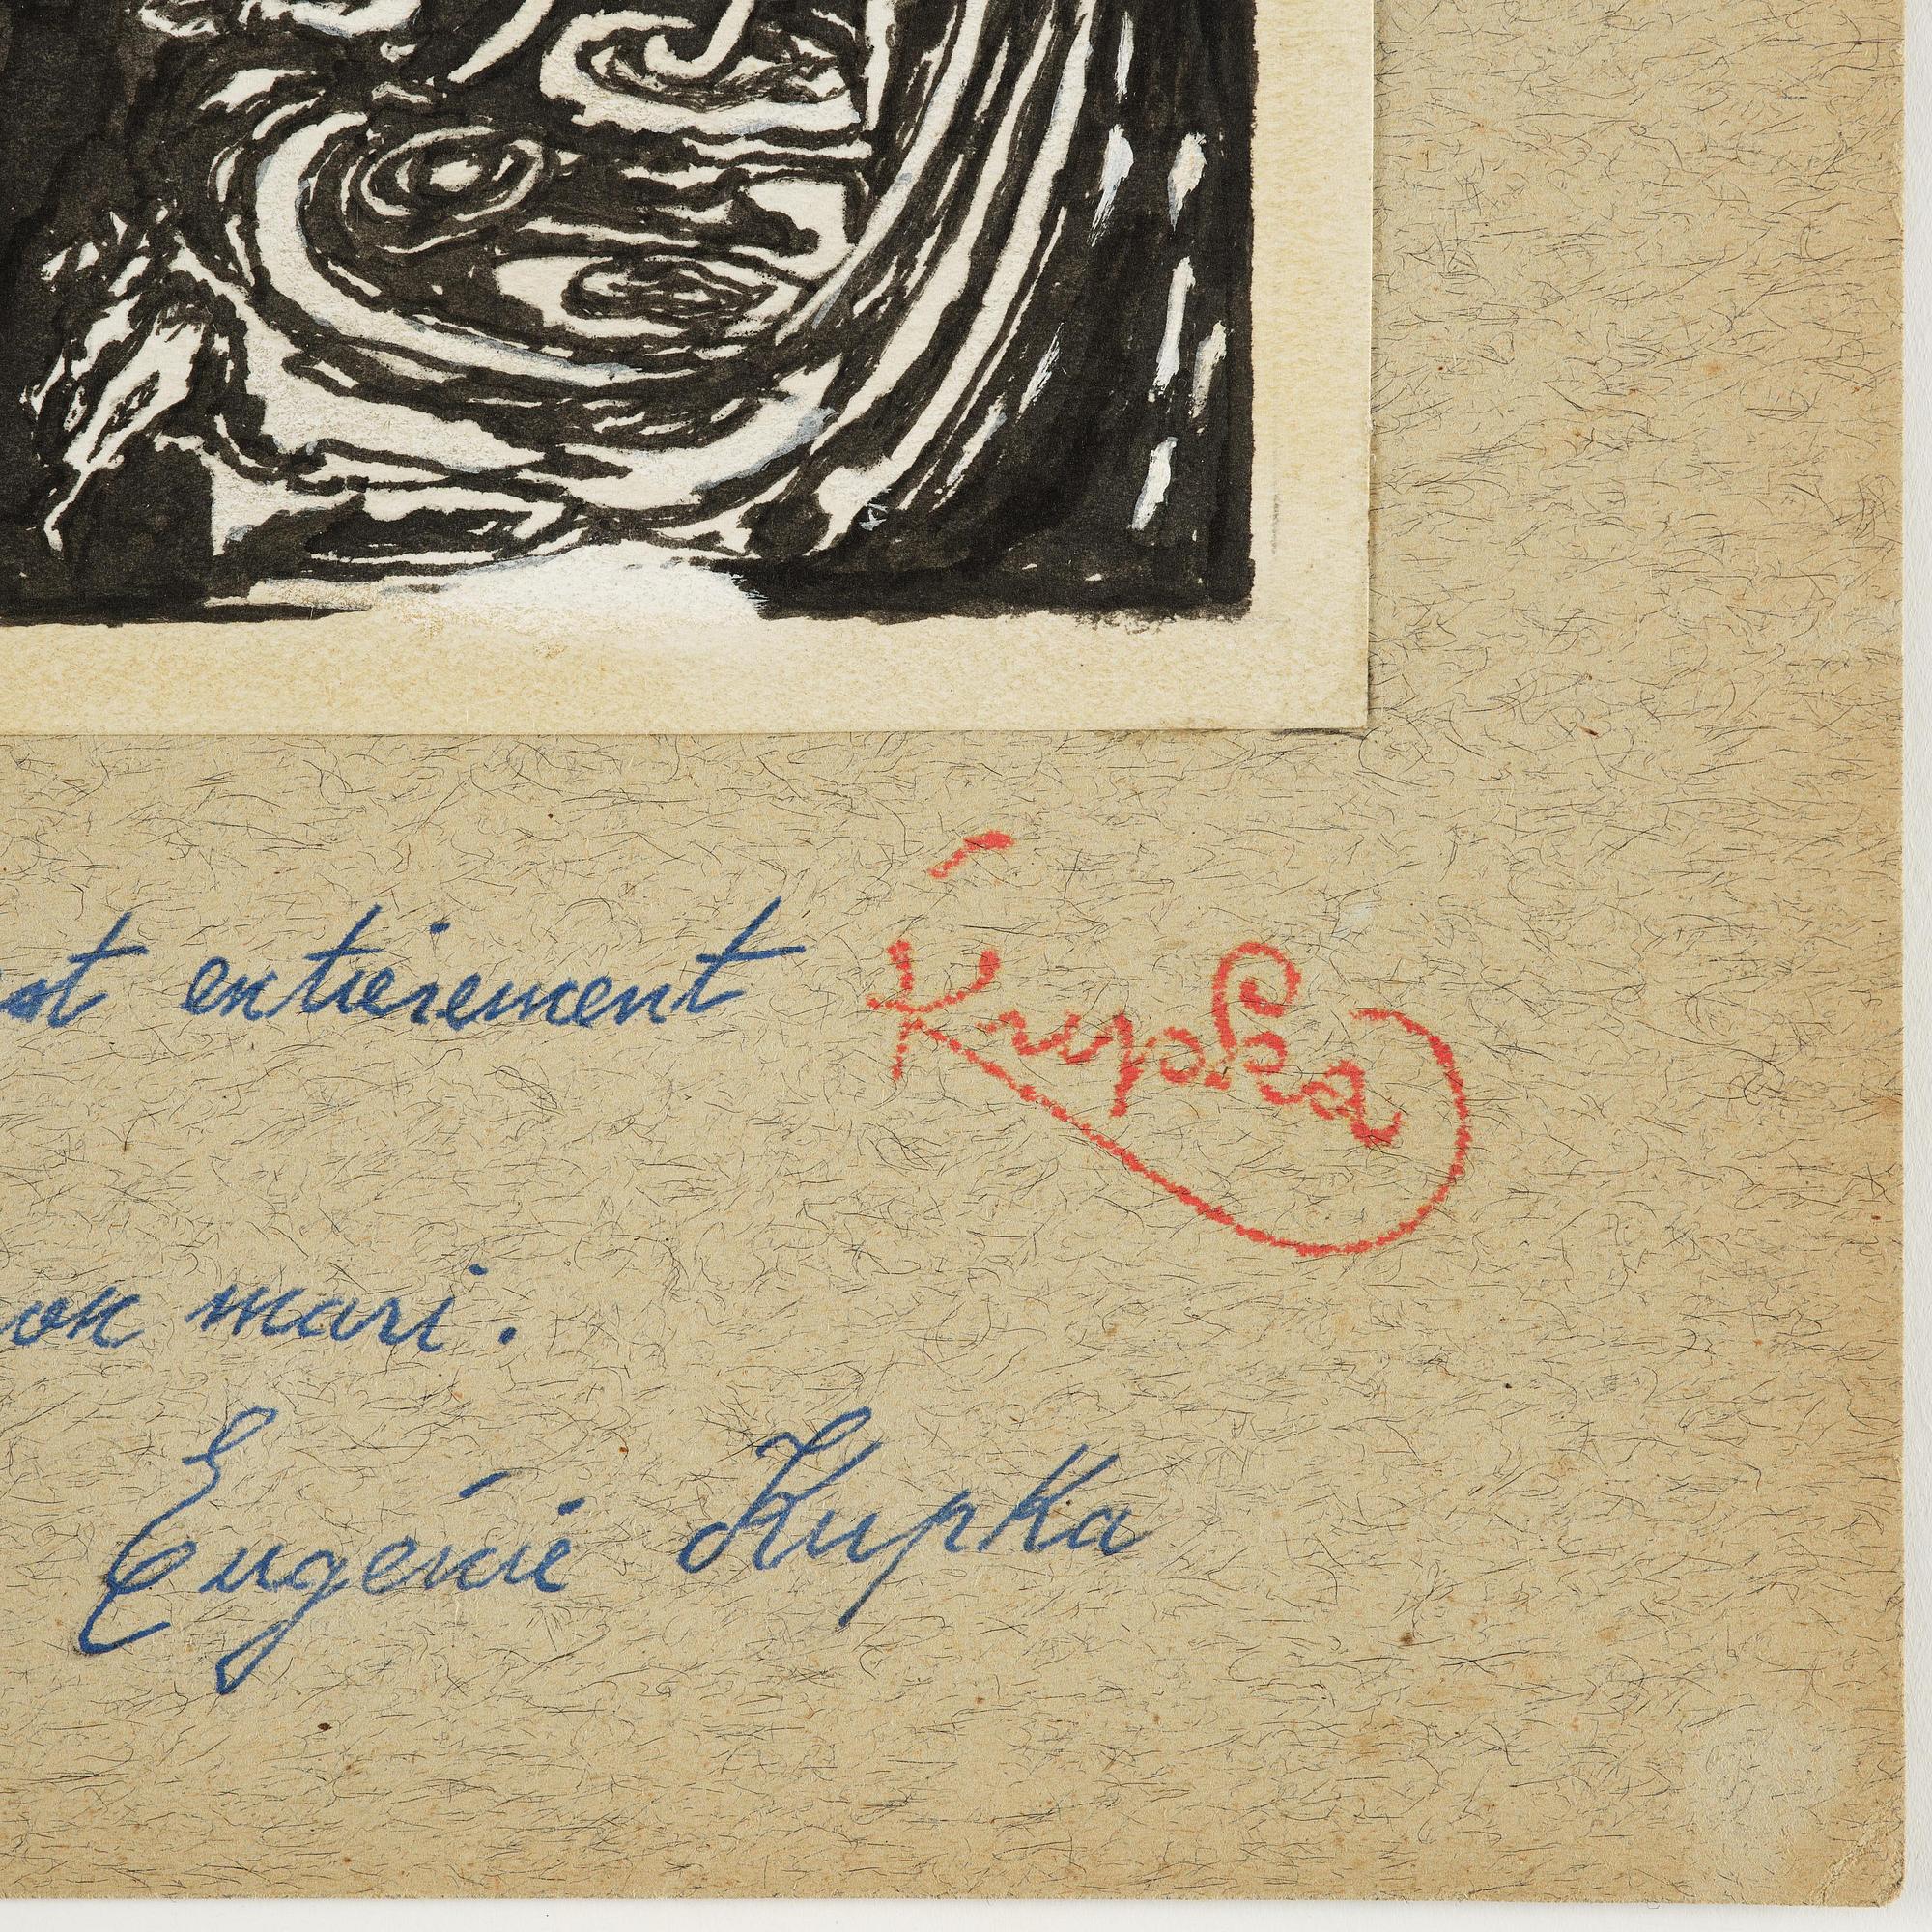 est entièrement
Kupka
mon mari.
Eugénie Kupka